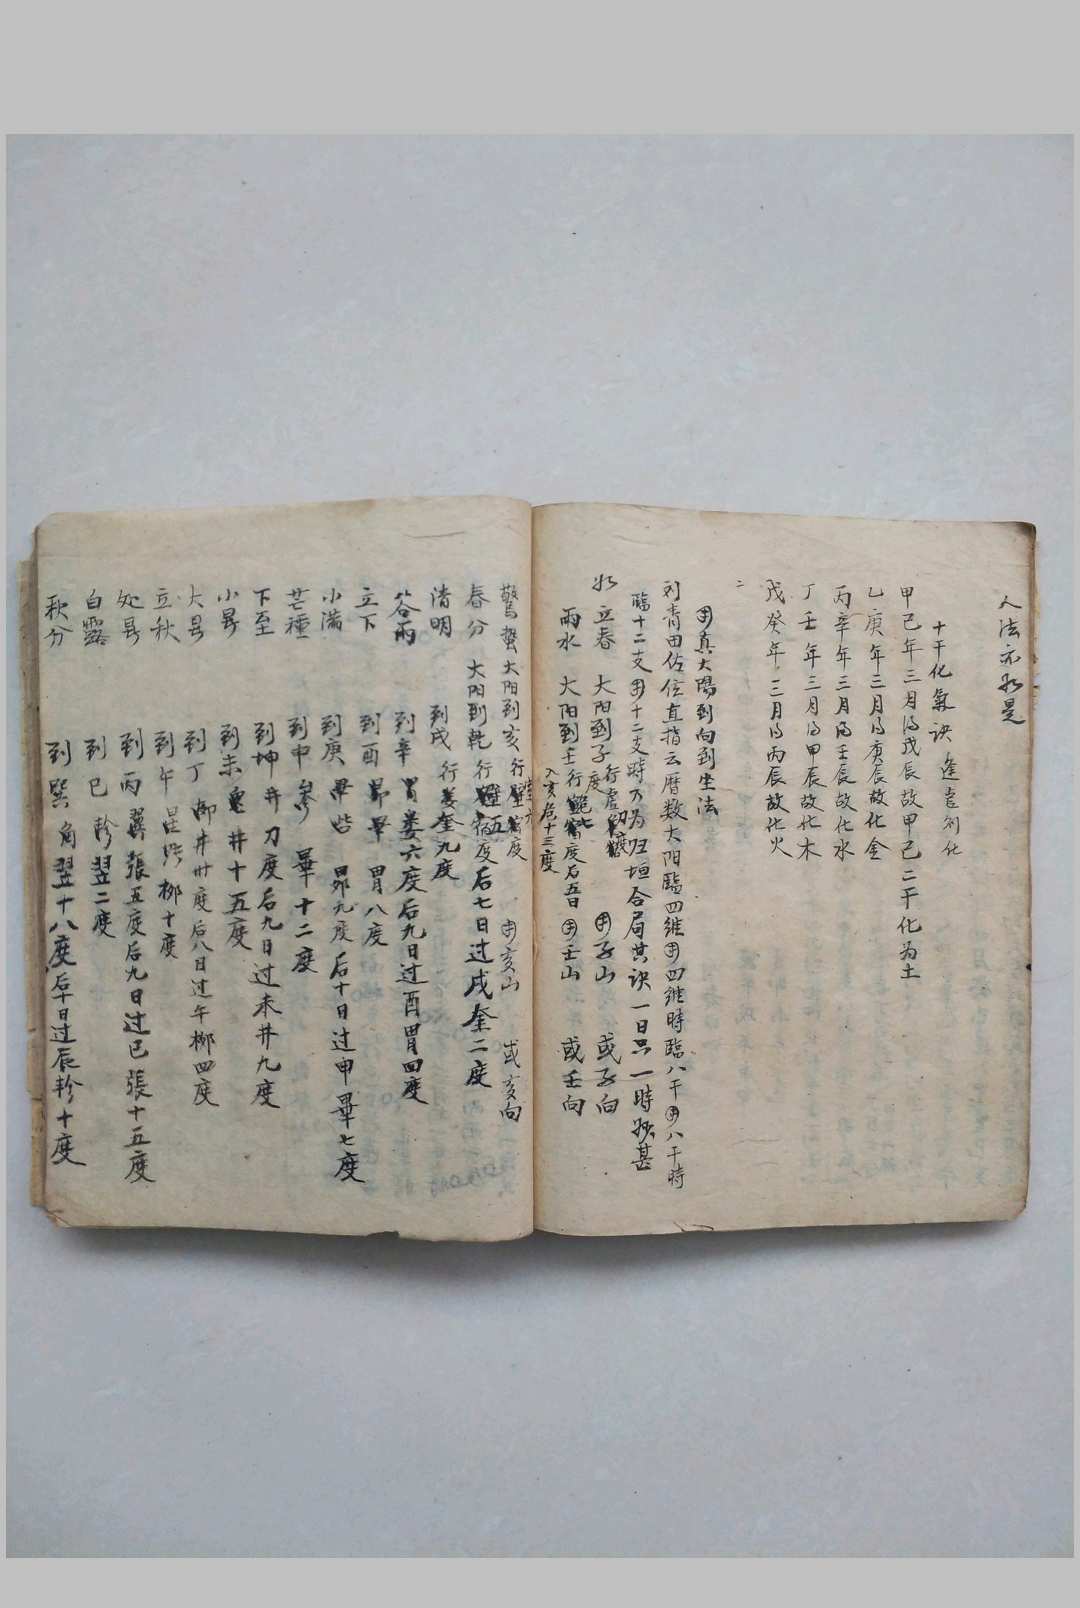 人法亦如是
十干化氣訣 逢音列化
甲己年三月得戊辰故甲己二干化为土
乙庚年三月得庚辰故化金
丙辛年三月得壬辰故化水
丁壬年三月得甲辰故化木
戊癸年三月得丙辰故化火
二
用真大陽到向到坐法
刘青田佐位直指云曆数大阳臨四維用四維時臨八干用八干時
臨十二支用十二支時万为归垣合局其訣一日只一時妙甚
如立春 大阳到子行虛初度 用子山 或子向
雨水 大阳到壬行 度后五日 用壬山 或壬向
入亥危十三度
驚蛰 大阳到亥行室 度 用亥山 或亥向
春分 大阳到乾行壁五度后七日过戌奎二度
清明 到戌行奎九度
谷雨 到辛胃娄六度后九日过酉胃四度
立下 到酉昴畢胃八度
小滿 到庚畢 昴九度后十日过申畢七度
芒種 到申參畢十二度
下至 到坤井 度后九日过未井九度
小暑 到未鬼井十五度
大暑 到丁柳井卅度后八日过午柳四度
立秋 到午星 柳十度
处暑 到丙翼張五度后九日过巳張十五度
白露 到巳軫翌二度
秋分 到巽角翌十八度后十日过辰軫十度